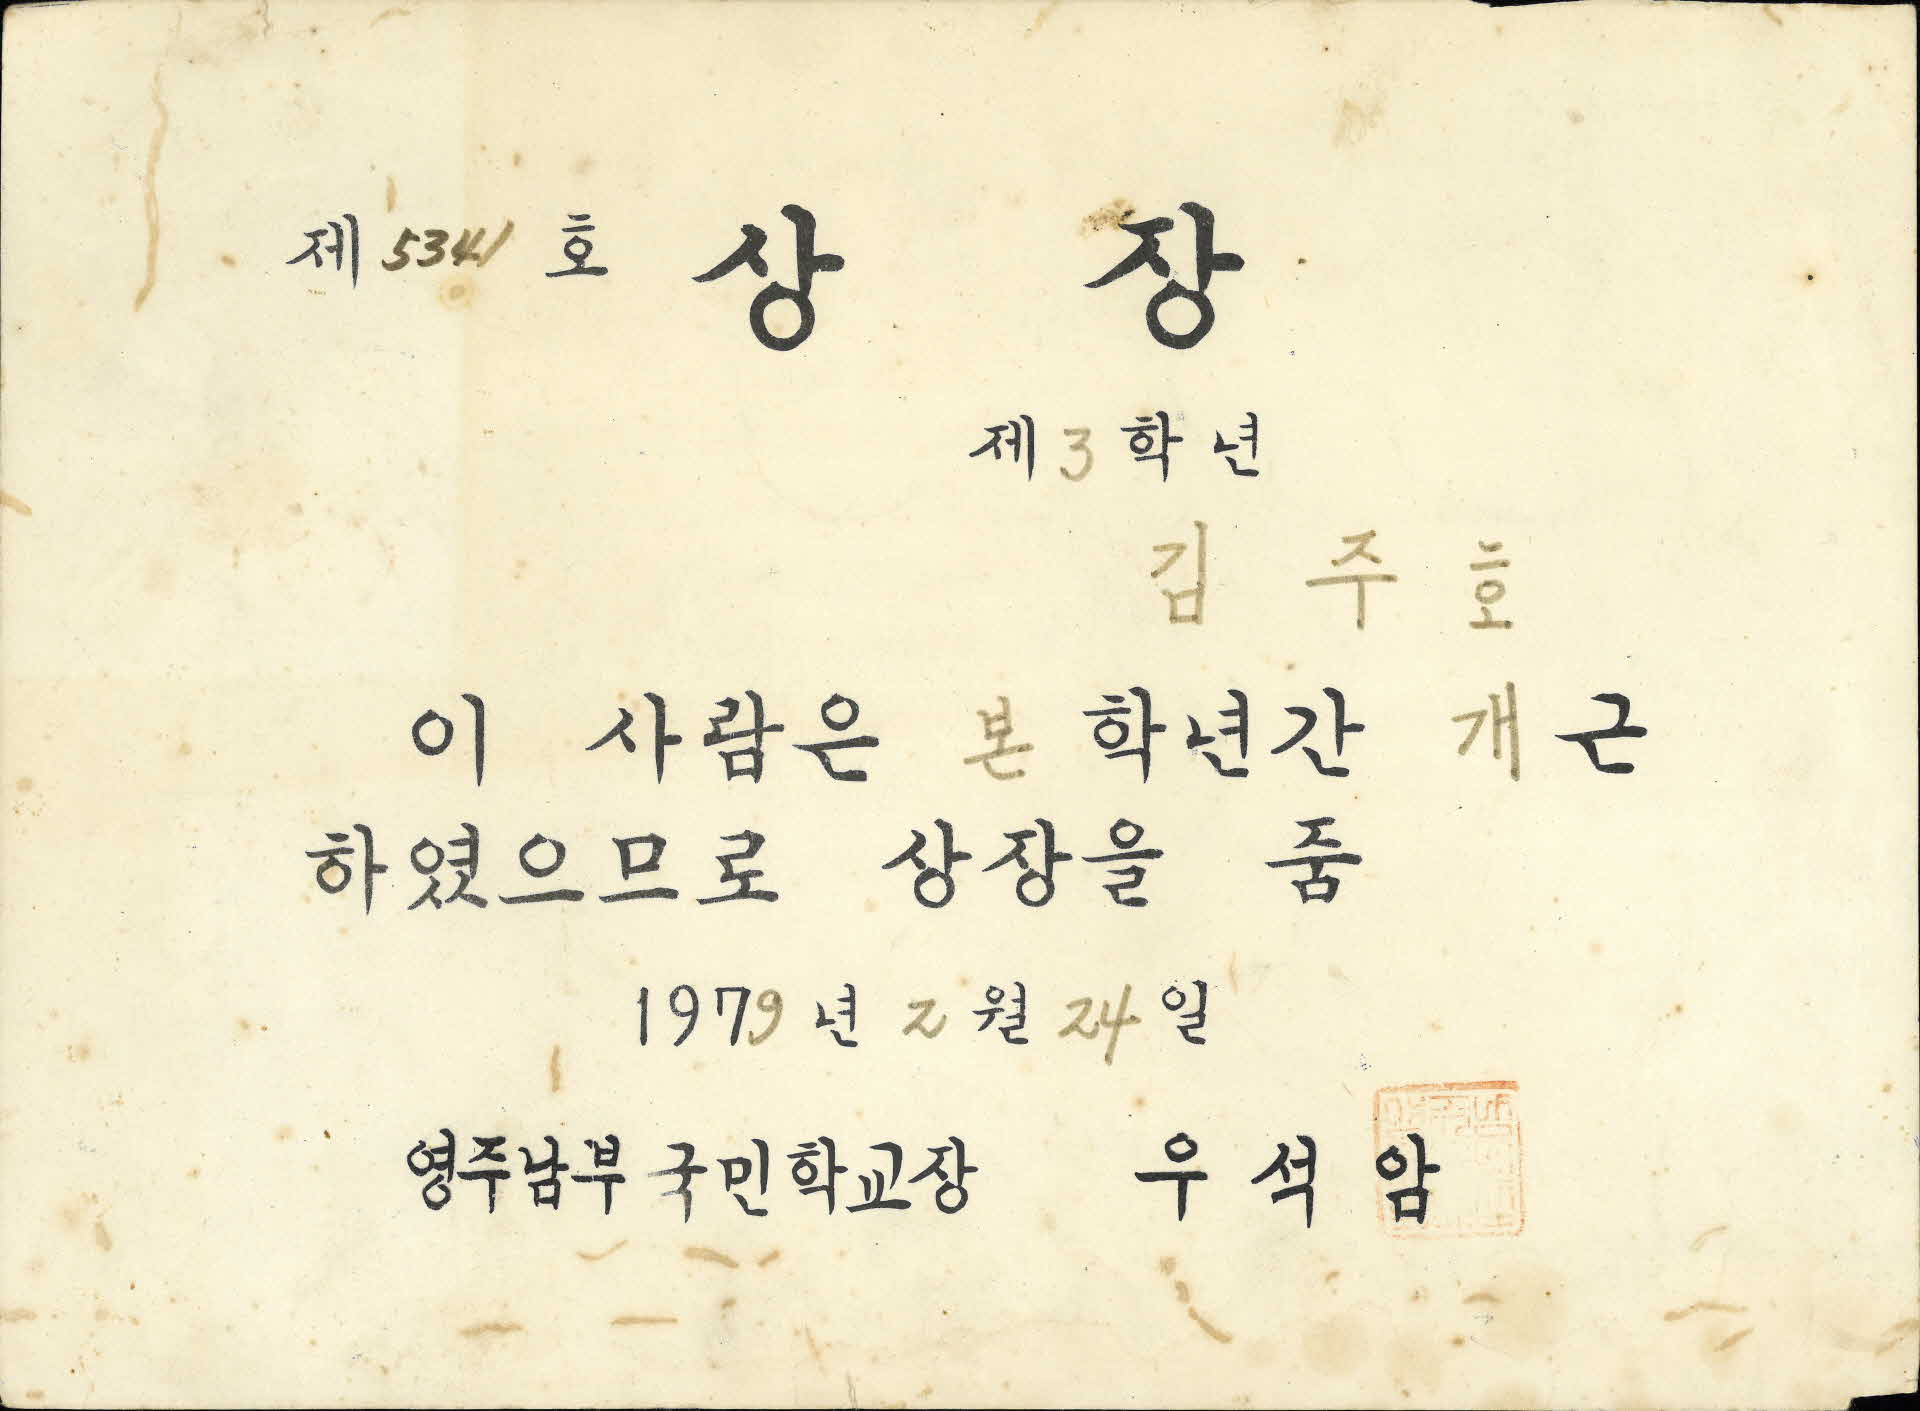 제 5341 호 상 장
제 3 학 년
김 주 호
이 사람은 본 학년간 개근
하였으므로 상장을 줌
1979 년 2 월 24 일
영주남부 국민학교장 우 석 암